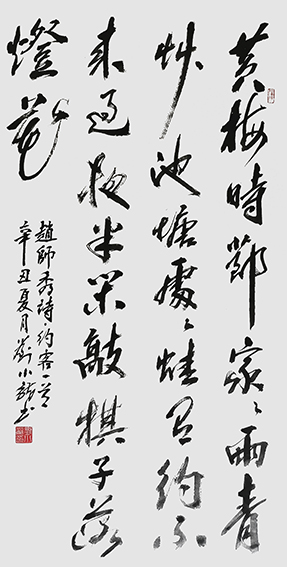 黄梅時節家〻雨青
艸池塘處〻蛙有約不
来過夜半閑敲棋子落
燈花
趙師秀詩·約客一首
辛丑夏月劉小龍书